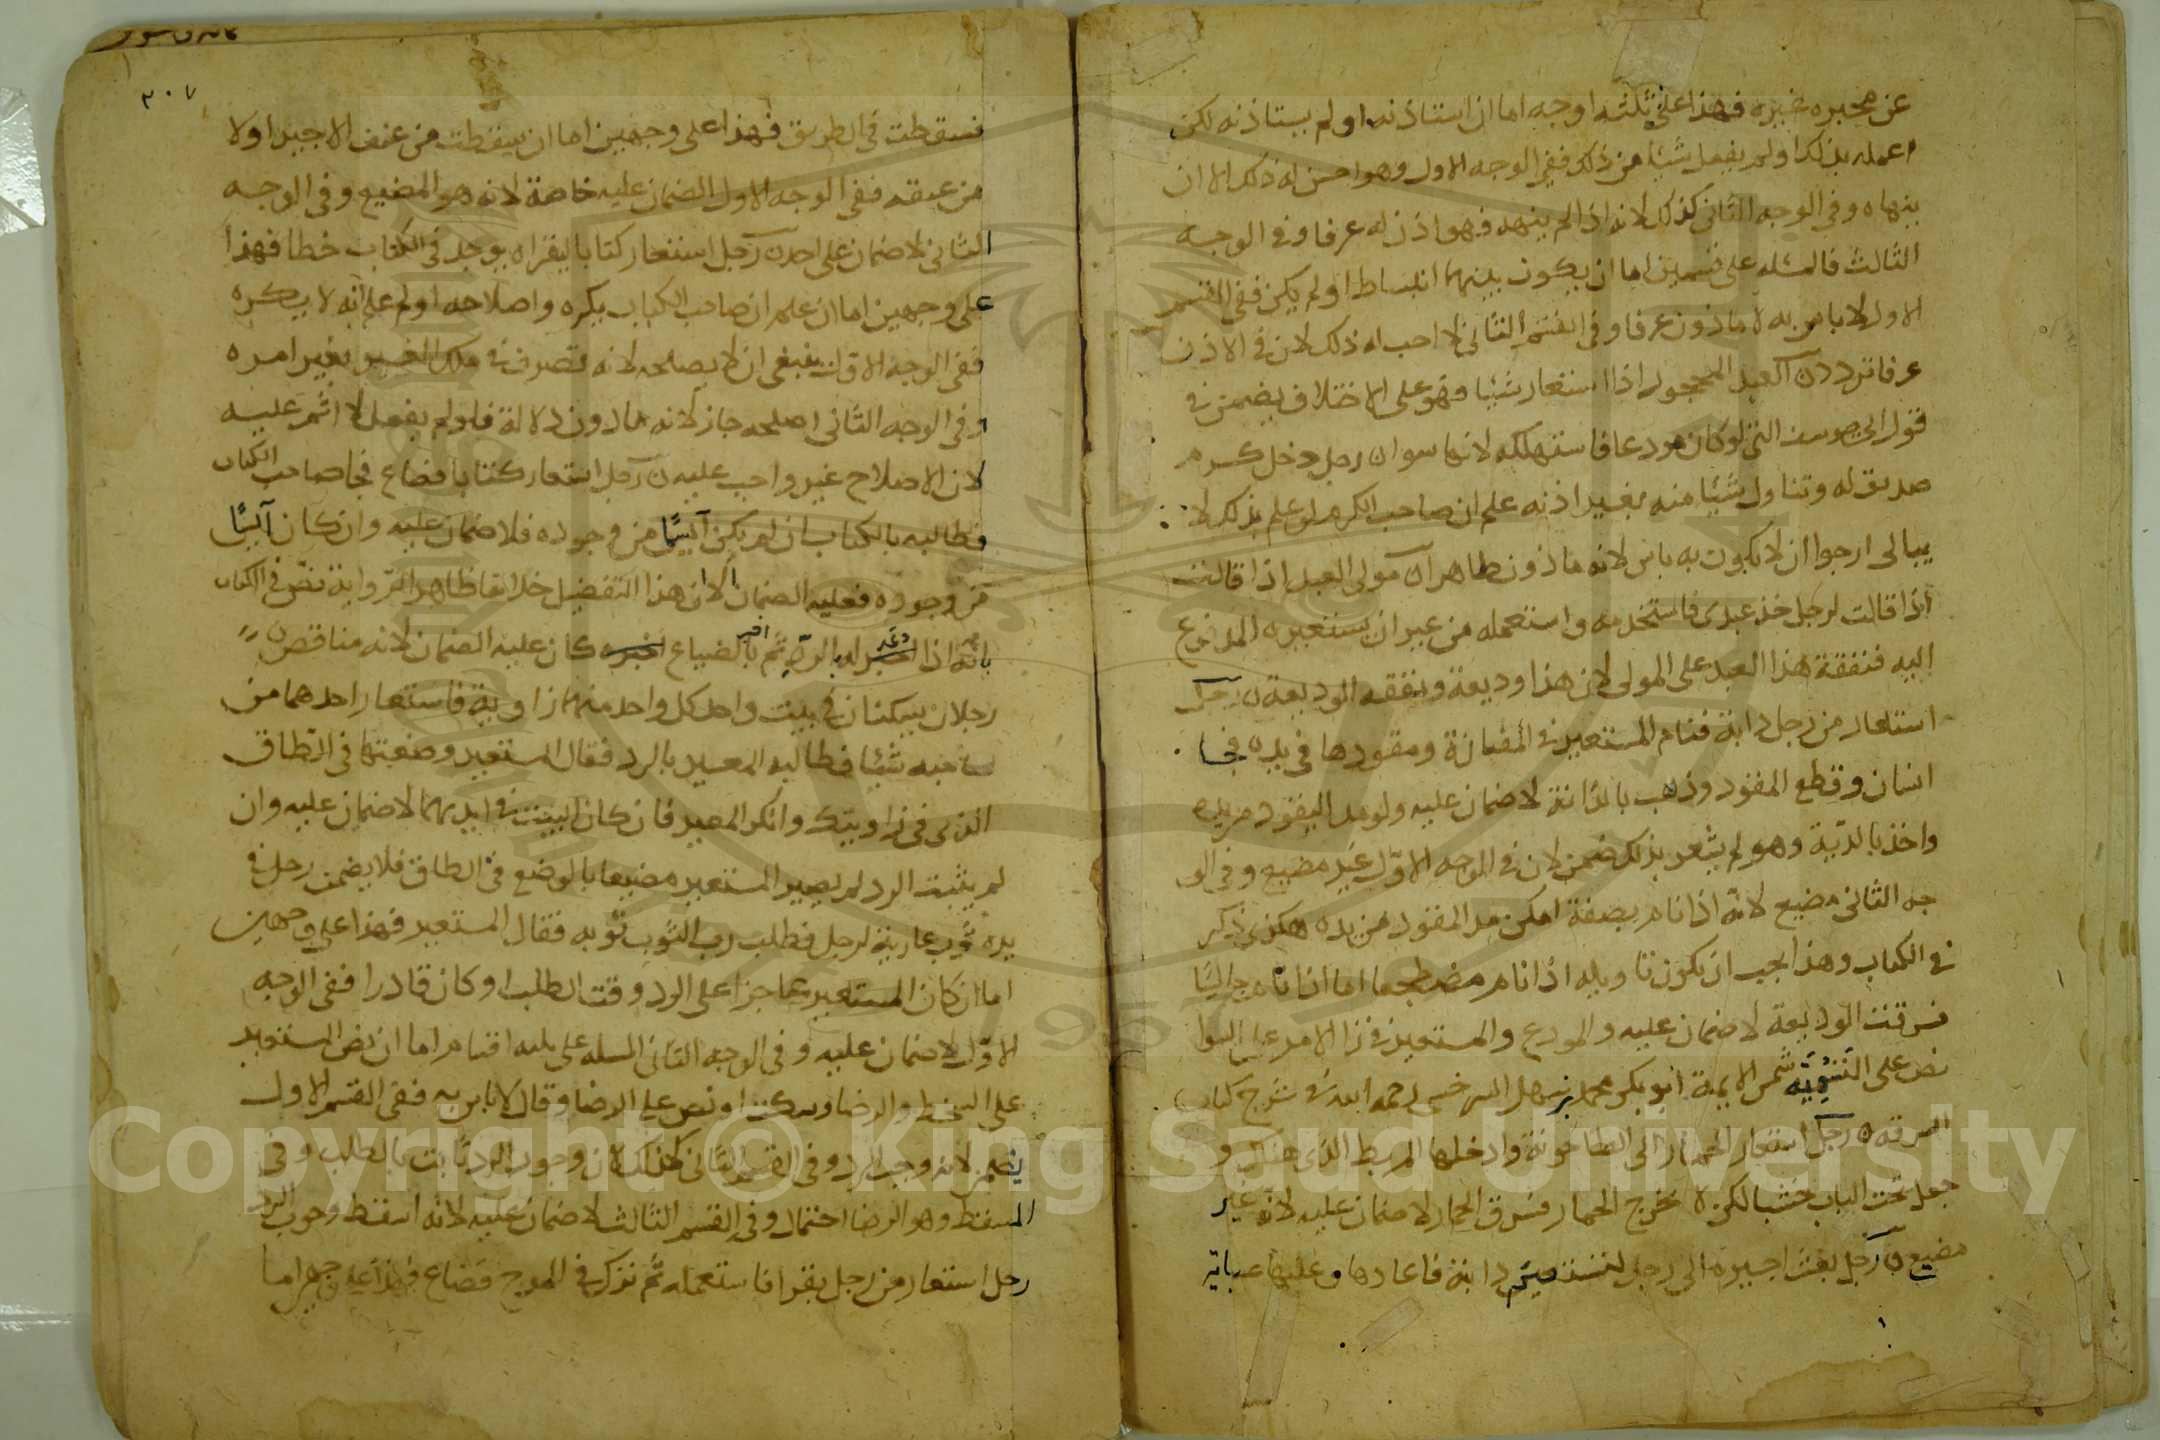 عن محبره غيره فهذا على ثلثه اوجه اما ان استاذنه او لم يستاذنه لكن
اعمله بذلك او لم يفعل شيئا من ذلك ففي الوجه الاول وهو احسن له ذلك الا ان
ينهاه وفي الوجه الثاني كذلك لانه اذا لم ينهه فهو اذن له عرفا وفي الوجه
الثالث فالمسئله على قسمين اما ان يكون بينهما انبساط او لم يكن ففي القسم
الاول لا باس به لا ماذون عرفا وفي القسم الثاني لا احب له ذلك لان في الاذن
عرفا تردد ن العبد المحجور اذا استعار شيئا فهو على الاختلاف يضمن في
قول ابي يوسف لو كان مودعا فاستهلكه لانها سوا ن رجل دخل كرم
صديق له وتناول شيئا منه بغير اذنه علم ان صاحب الكرم لو علم بذلك لا
يبالي ارجوا ان لا يكون به باس لانه ماذون ظاهرا ن مولى العبد اذا قالت
اذا قالت لرجل خذ عبدي فاستخدمه واستعمله من غير ان يستعيره المدفوع
اليه فنفقة هذا العبد على المولى لان هذا وديعة ونفقه الوديعة ن رجل
استعار من رجل دابة فنام المستعير في المفازة ومقودها في يده فجا
انسان وقطع المقود وذهب بالدابة لا ضمان عليه ولو مد المقود من يده
واخذ بالدابة وهو لم يشعر بذلك ضمن لان في الوجه الاول غير مضيع وفي الو
جه الثاني مضيع لانه اذا نام بصفة امكن مد المقود من يده هكذى ذكر
في الكتاب وهذا يجب ان يكون تاويله اذا نام مضطجعا اما اذا نام جالسا
فسرقت الوديعة لا ضمان عليه والمودع والمستعير في ذا الامر على السوا
نص على التسوية شمس الايمة ابو بكر محمد بن سهل السرخسي رحمه الله في شرح كتاب
السرقة ن رجل استعار الحمار الى الطاحونة وادخلها المربط الذي هنك و
جعل تحت الباب خشبا لكي لا يخرج الحمار فسرق الحمار لا ضمان عليه لانه غير
مضيع ن رجل بعث اجيره الى رجل لتستعير دابة فاعادها وعليها عباية
٣٠٧
فسقطت في الطريق فهذا على وجهين اما ان سقطت من عنف الاجير اولا
من عنفه ففي الوجه الاول الضمان عليه خاصة لانه هو المضيع وفي الوجه
الثاني لا ضمان على احد ن رجل استعار كتابا ليقراه يوجد في الكتاب خطا فهذا
على وجهين اما ان علم ان صاحب الكتاب يكره واصلاحه او لم علم انه لا يكره
ففي الوجه الاول ينبغي ان لا يصلحه لانه تصرف في ملك الغير بغير امره
وفي الوجه الثاني اصلحه جاز لانه ماذون دلالة فلو لم يفعل لا اثم عليه
لان الاصلاح غير واجب عليه ن رجل استعار كتابا فضاع فجا صاحب الكتاب
فطالبه بالكتاب ان لم يكن آيسا من وجوده فلا ضمان عليه وان كان آيسا
من وجوده فعليه الضمان الا ان هذا التفصيل خلاف ظاهر الرواية نص في الكتاب
بانه اذا وعده بالرد ثم بالضياع اخبره كان عليه الضمان لانه مناقض ن
رجلان يسكنان في بيت واحد كل واحد منهما زاوية فاستعار احدهما من
صاحبه شيئا فطالبه المعير بالرد فقال المستعير وضعتها في الطاق
الذي في زاويتك وانكر المعير فان كان البيت في ايديهما لا ضمان عليه وان
لم يثبت الرد لم يصير المستعير مضيعا بالوضع في الطاق فلا يضمن رجل في
يده ثوب عارية لرجل فطلب رب الثوب ثوبه فقال المستعير فهذا على وجهين
اما ان كان المستعير عاجزا على الرد وقت الطلب او كان قادرا ففي الوجه
الاول لا ضمان عليه وفي الوجه الثاني المسله على ثلثه اقسام اما ان نص المستعير
على السخط والرضا وسكت او نص على الرضا وقال لا باس به ففي القسم الاول
يضمن لانه وجب الرد وفي القسم الثاني كذلك لان وجوب الرد ثابت بالطلب وفي
المسقط وهو الرضا احتمال وفي القسم الثالث لا ضمان عليه لانه اسقط وجوب الرد
رجل استعار من رجل بقرا فاستعمله ثم تركه في المرج فضاع فهذا على وجهين اما
Copyright © King Saud University
1957